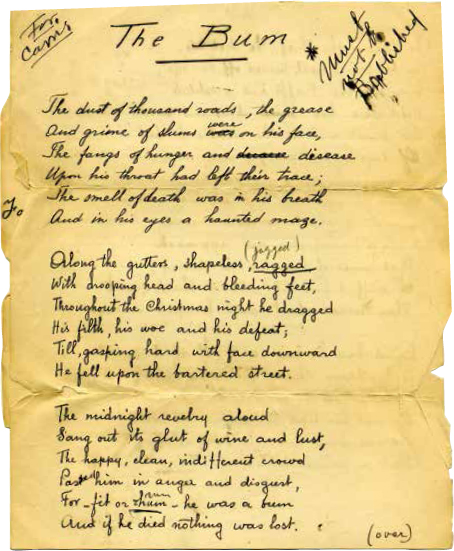 For
Cam's
The Bum
* Must
not be
Published
The dust of thousand roads, the grease
And grime of slums was were on his face,
The fangs of hunger and disease disease
Upon his throat had left their trace;
The smell of death was in his breath
And in his eyes a haunted maze.
To
(jagged)
Along the gutters, shapeless, ragged
With drooping head and bleeding feet,
Throughout the Christmas night he dragged
His filth, his woe and his defeat;
Till, gasping hard with face downward
He fell upon the bartered street.
The midnight revelry aloud
Sang out its glut of wine and lust,
The happy, clean, indifferent crowd
Passed him in anger and disgust,
For - fit or rum - he was a bum
And if he died nothing was lost.
(over)